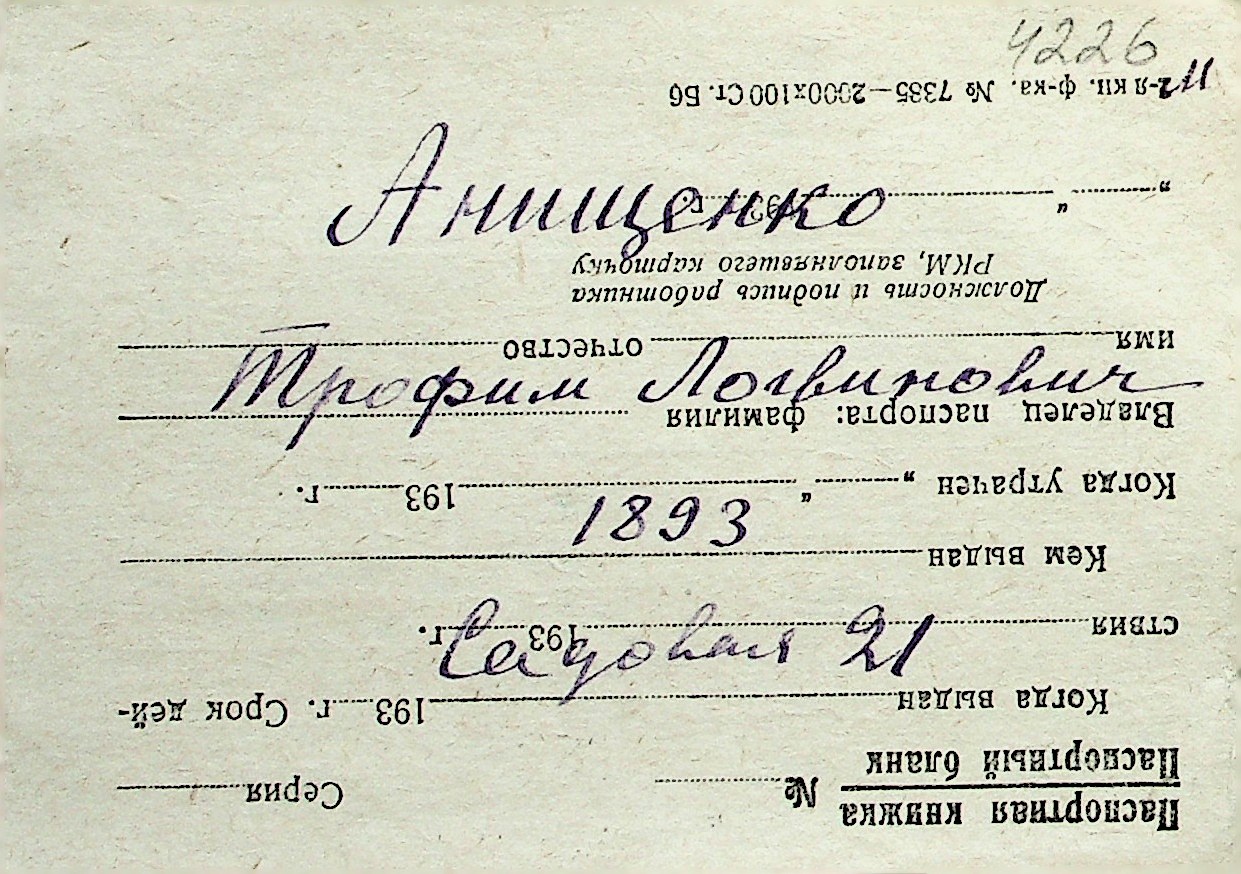 4226
11
Анищенко
Трофим Логвинович
1893
Садовая 21
Паспортная книжка
Паспортный бланк
№ Серия
Когда выдан 193 г. Срок дей-
ствия 193 г.
Кем выдан
Когда утрачен „ “ 193 г.
Владелец паспорта: фамилия
имя отчество
Должность и подпись работника
РКМ, заполнявшего карточку
„ “ 193 г.
1-я кн. ф-ка. № 7385—2000х100 Ст. Б6